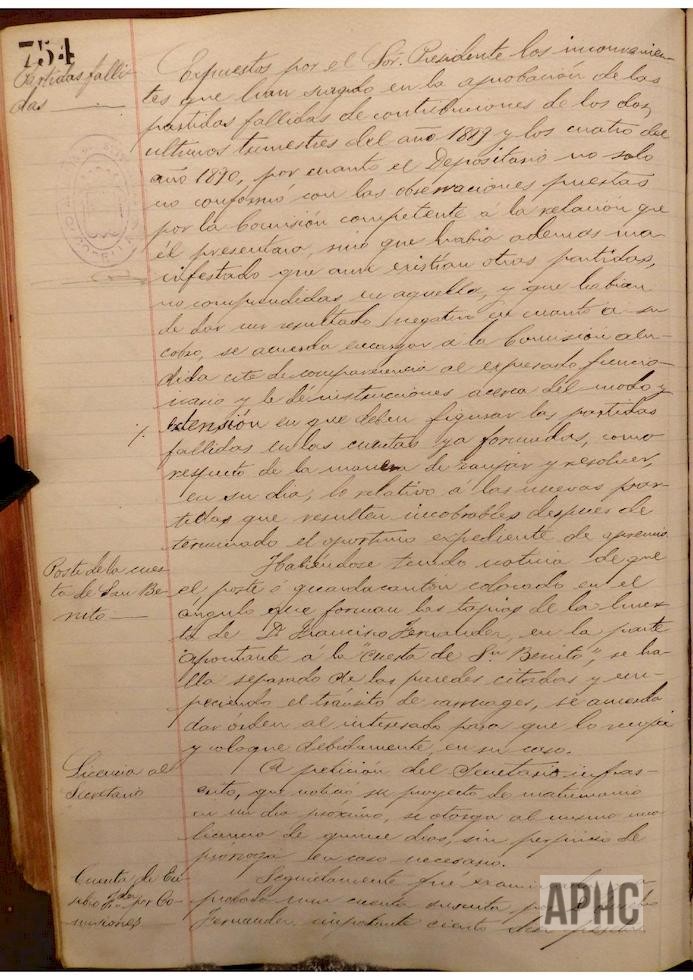 754
Partidas falli-
das
Expuestos por el Sor. Presidente los inconvenien-
tes que han surgido en la aprobación de las
partidas fallidas de contribuciones de los dos
ultimos trimestres del año 1889 y los cuatro del
año 1890, por cuanto el Depositario no solo
no conformó con las observaciones puestas
por la Comisión competente á la relación que
él presentara, sino que había además ma-
nifestado que aun existian otras partidas,
no comprendidas en aquella, y que habian
de dar un resultado negativo en cuanto a su
cobro, se acuerda encargar á la Comisión alu-
dida cite de comparecencia al expresado funcio-
nario y le dé instrucciones acerca del modo y
extensión en que deben figurar las partidas
fallidas en las cuentas ya formadas, como
respecto de la manera de zanjar y resolver,
en su dia, lo relativo á las nuevas par-
tidas que resulten incobrables despues de
terminado el oportuno expediente de apremio.
Poste de la cues-
ta de San Be-
nito
Habiéndose tenido noticia de que
el poste ó guardacantón colocado en el
ángulo que forman las tapias de la huer-
ta de Dn. Francisco Fernandez, en la parte
confrontante á la "Cuesta de Sn. Benito", se ha-
lla separado de las paredes citadas y em-
peciendo el tránsito de carruages, se acuerda
dar órden al interesado para que lo recoja
y coloque debidamente, en su caso.
Licencia al
Secretario
A petición del Secretario infras-
crito, que notició su proyecto de matrimonio
en un dia próximo, se otorga al mismo una
licencia de quince dias, sin perjuicio de
prórroga en caso necesario.
Cuenta de Eu-
sebio Fdez por Co-
misiones
Seguidamente fué examinada y
probada una cuenta suscrita por
Fernandez, importante ciento
APHC